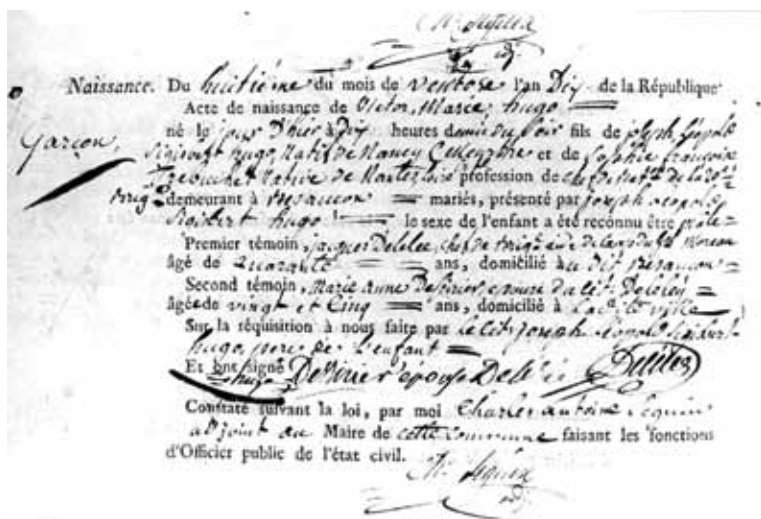 adj.
Naissance. Du huitième du mois de Ventose l'an Dix de la République
Acte de naissance de Victor, Marie, hugo
Garçon,
né le jour D'hier à dix heures demie du Soir fils de joseph léopold
Sigisbert hugo, Natif de Nancy et de Sophie françoise
Trebuchet Native de Nantes profession de chef de
demeurant à Besançon mariés, présenté par joseph léopold
Sigisbert hugo le sexe de l'enfant a été reconnu être mâle
Premier témoin, jacques Delelée, chef de Brigade Moreau
âgé de quarante ans, domicilié à Besançon
Second témoin, Marie anne Dessirier épouse du cit. Delelée
âgée de vingt et Cinq ans, domicilié à ladite ville
Sur la réquisition à nous faite par le cit. joseph léopold Sigisbert
hugo, pere de l'enfant
Et ont signé
hugo Dessirier épouse Delelée Delelée
Constaté suivant la loi, par moi Charles antoine Seguin
adjoint au Maire de cette Commune faisant les fonctions
d'Officier public de l'état civil.
Ch. Seguin
adj.